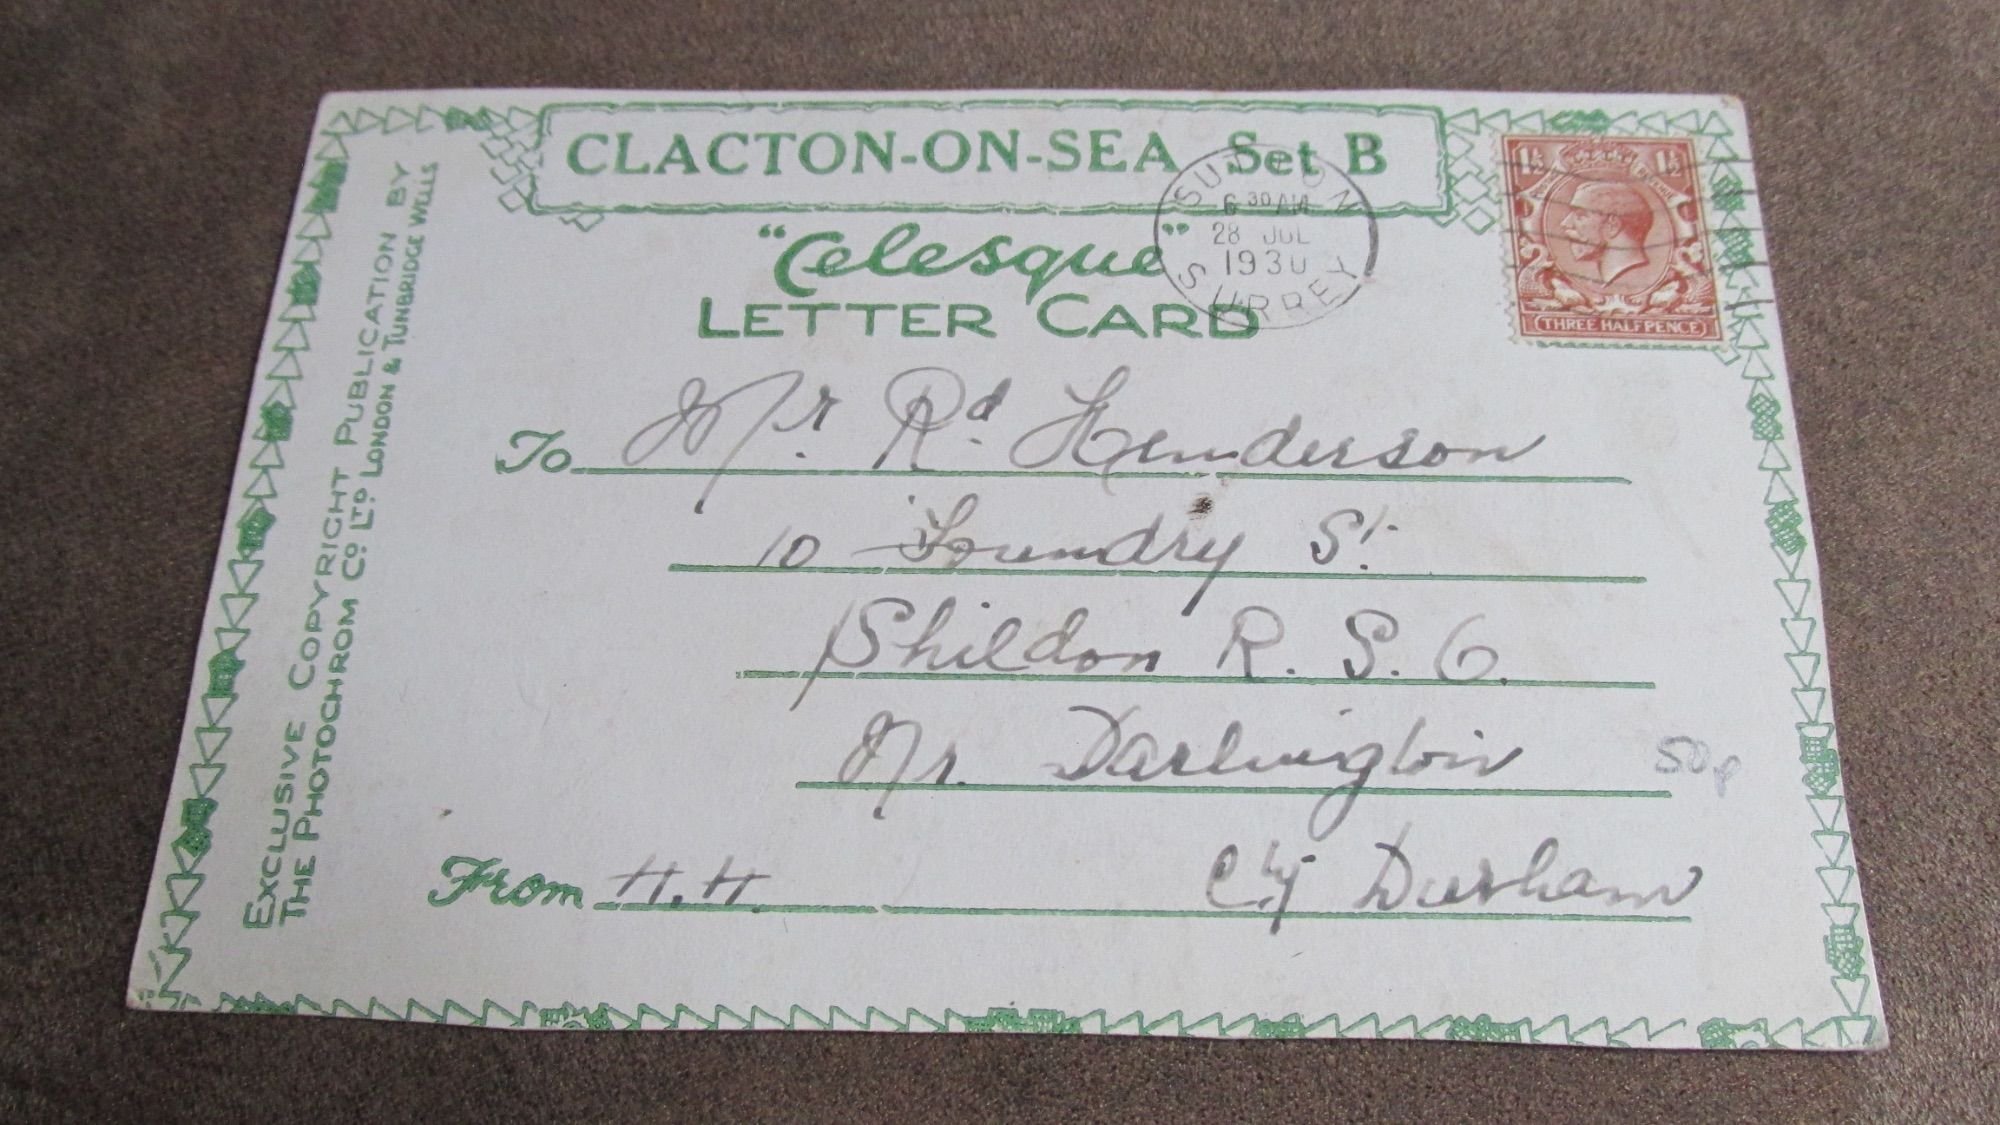 CLACTON-ON-SEA Set B
"Celesque"
LETTER CARD
SUTTON
6 30 AM
28 JUL
1930
SURREY
1½ 1½
THREE HALFPENCE
To Mr. Rd. Henderson
10 Foundry St.
Shildon R. S. O.
Nr. Darlington
50p
From H. H. Cty Durham
EXCLUSIVE COPYRIGHT PUBLICATION BY
THE PHOTOCHROM CO LTD LONDON & TUNBRIDGE WELLS